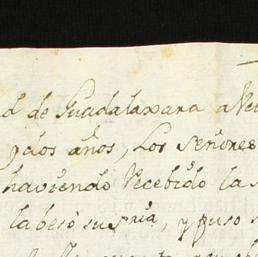 d de Guadalaxara a Ve
y dos años, Los señores
haviendo Recebido la s
la besó su sria, y puso s